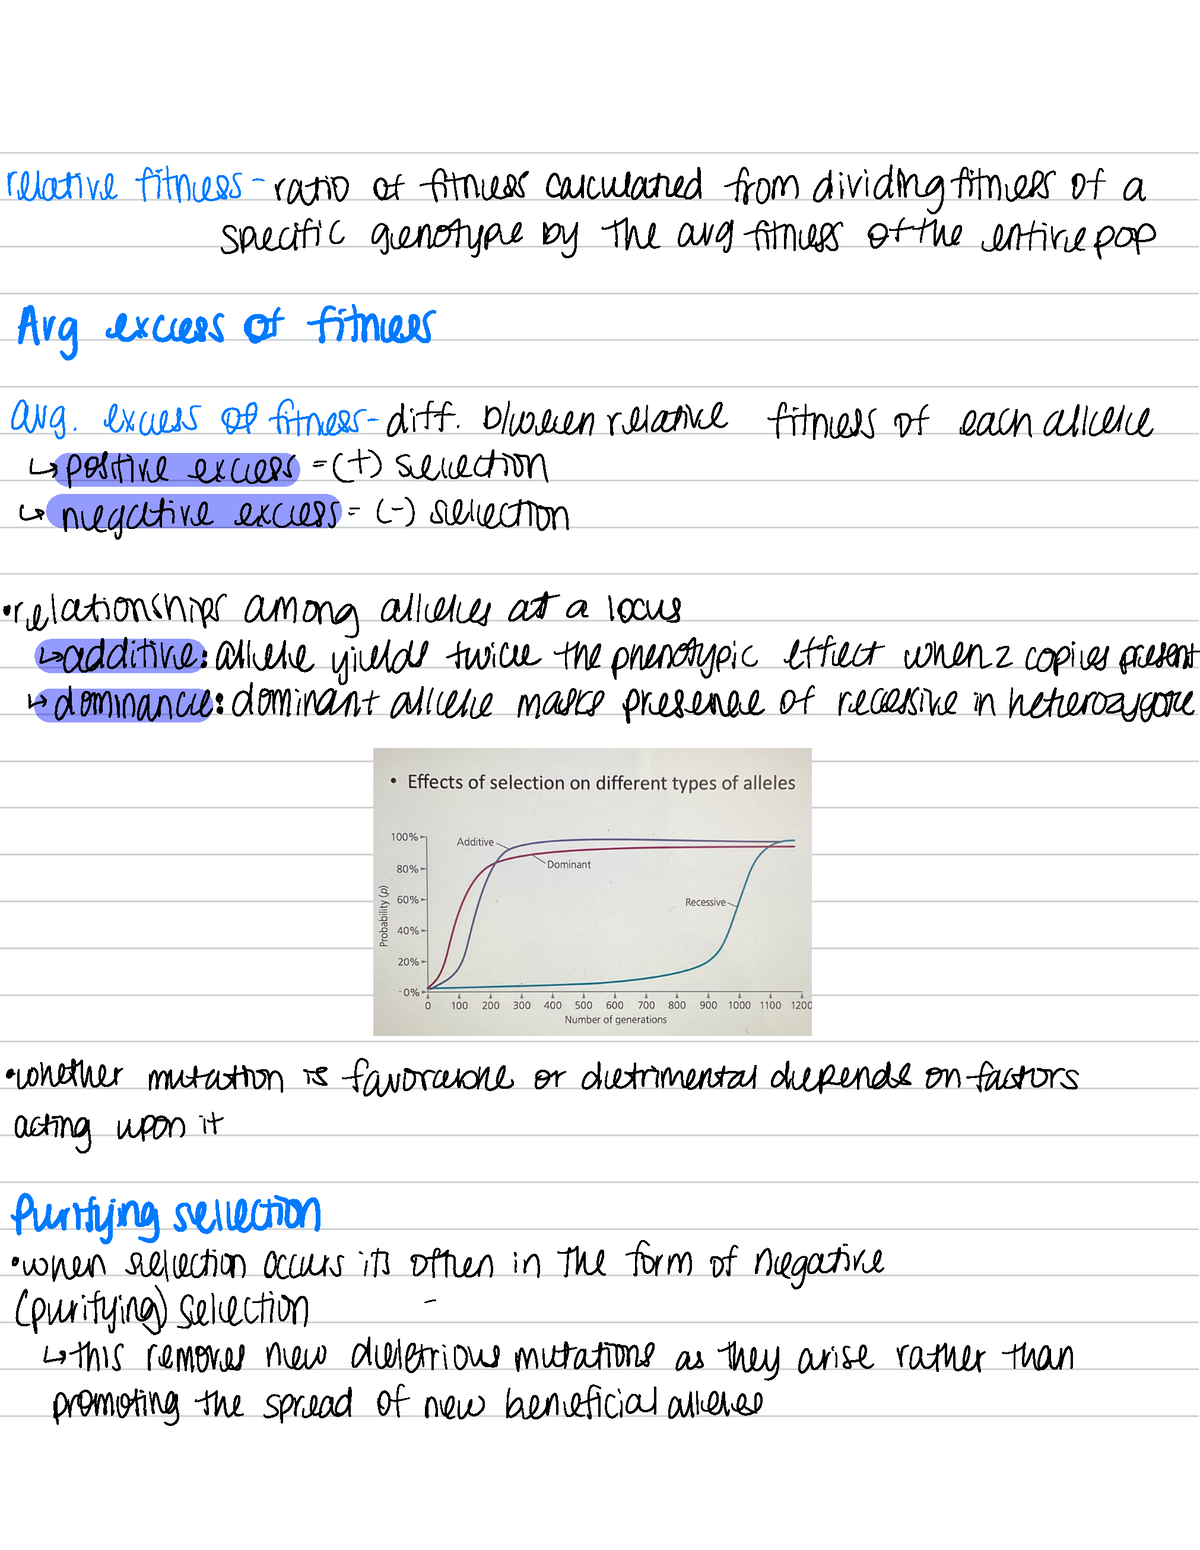 relative fitness - ratio of fitness calculated from dividing fitness of a
specific genotype by the avg fitness of the entire pop
Avg excess of fitness
avg. excess of fitness - diff. b/ween relative fitness of each allele
↳ positive excess = (+) selection
↳ negative excess = (-) selection
• relationships among alleles at a locus
↳ additive: allele yields twice the phenotypic effect when 2 copies present
↳ dominance: dominant allele masks presence of recessive in heterozygote
• Effects of selection on different types of alleles
100%
Additive
Dominant
80%
Probability (p)
60%
Recessive
40%
20%
0%
0 100 200 300 400 500 600 700 800 900 1000 1100 1200
Number of generations
• whether mutation is favorable or detrimental depends on factors
acting upon it
Purifying selection
• when selection occurs its often in the form of negative
(purifying) selection
↳ this removes new deletrious mutations as they arise rather than
promoting the spread of new beneficial alleles